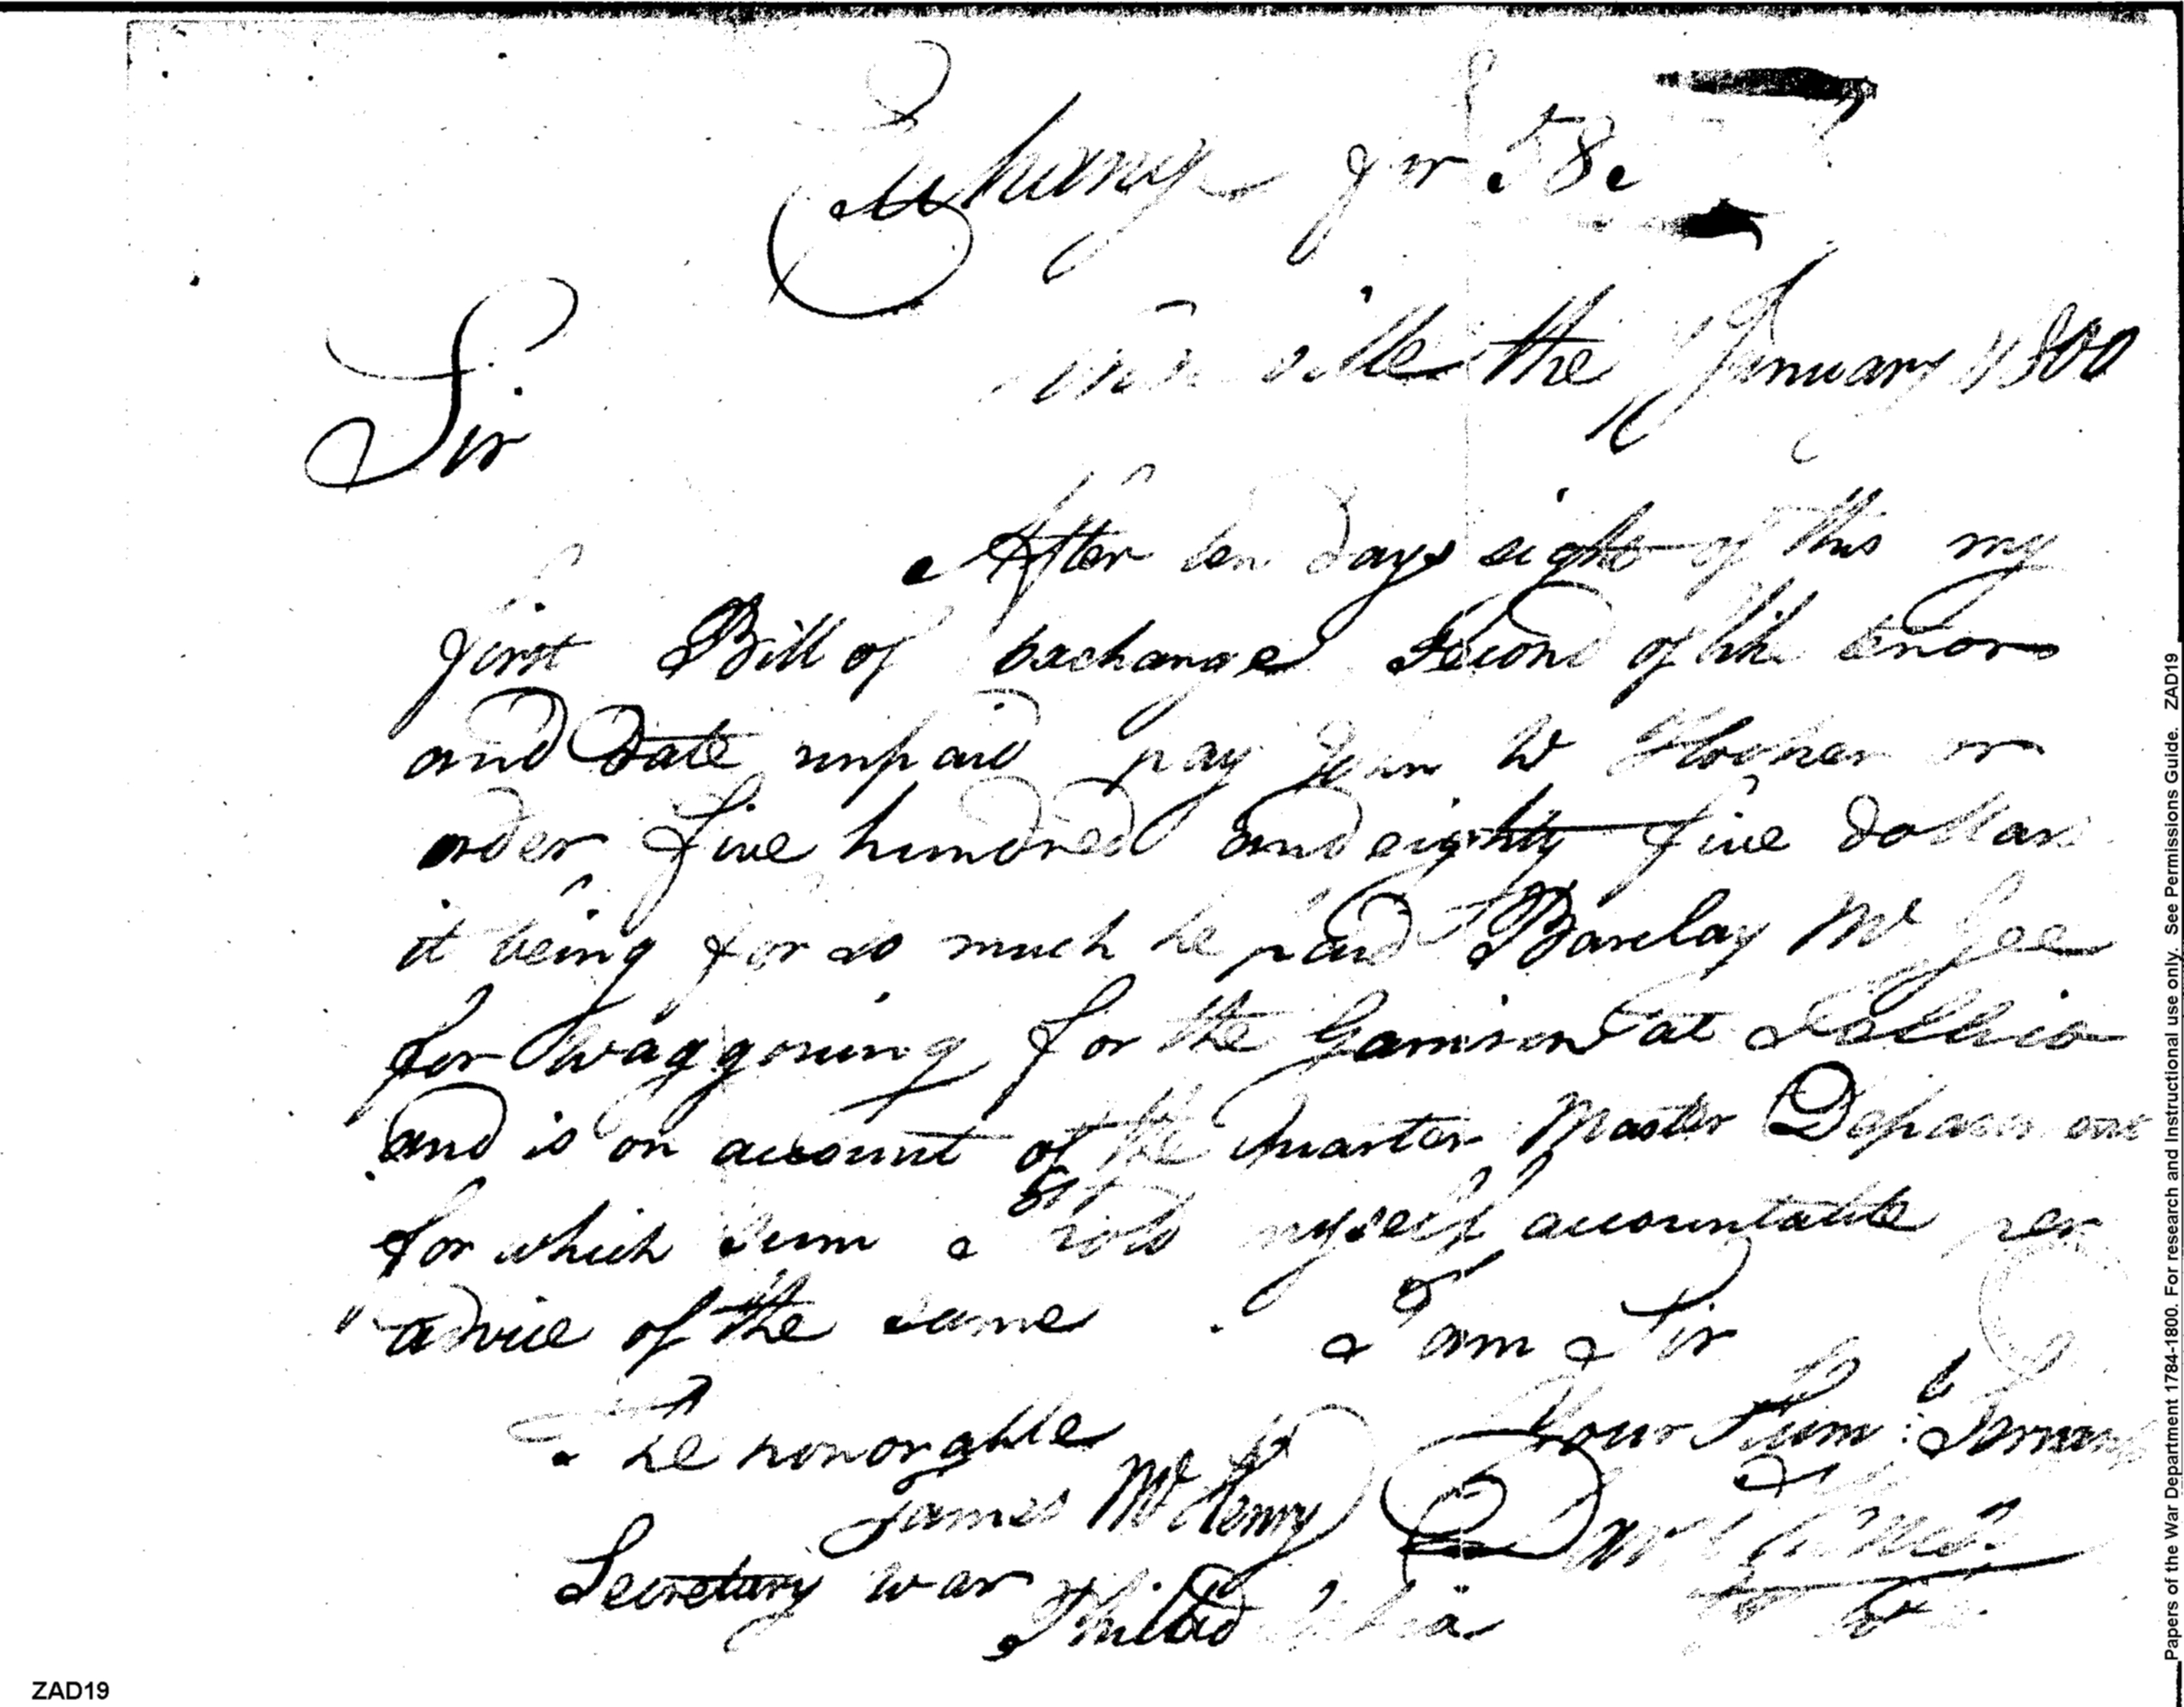 Exchange for 58
ville the January 1800
Sir
After ten days sight of this my
first Bill of exchange second of like tenor
and Date unpaid pay John W Hooker or
order five hundred and eighty five dollars
it being for so much he paid Barclay Mc Gee
for waggoning for the Garrison at Tellico
and is on account of the Quarter Master
for which sum I hold myself accountable per
advice of the same . I am Sir
The honorable Your Hum: Servant
James McHenry
Secretary war
Philadelphia
Papers of the War Department 1784-1800. For research and Instructional use only. See Permissions Guide. ZAD19
ZAD19